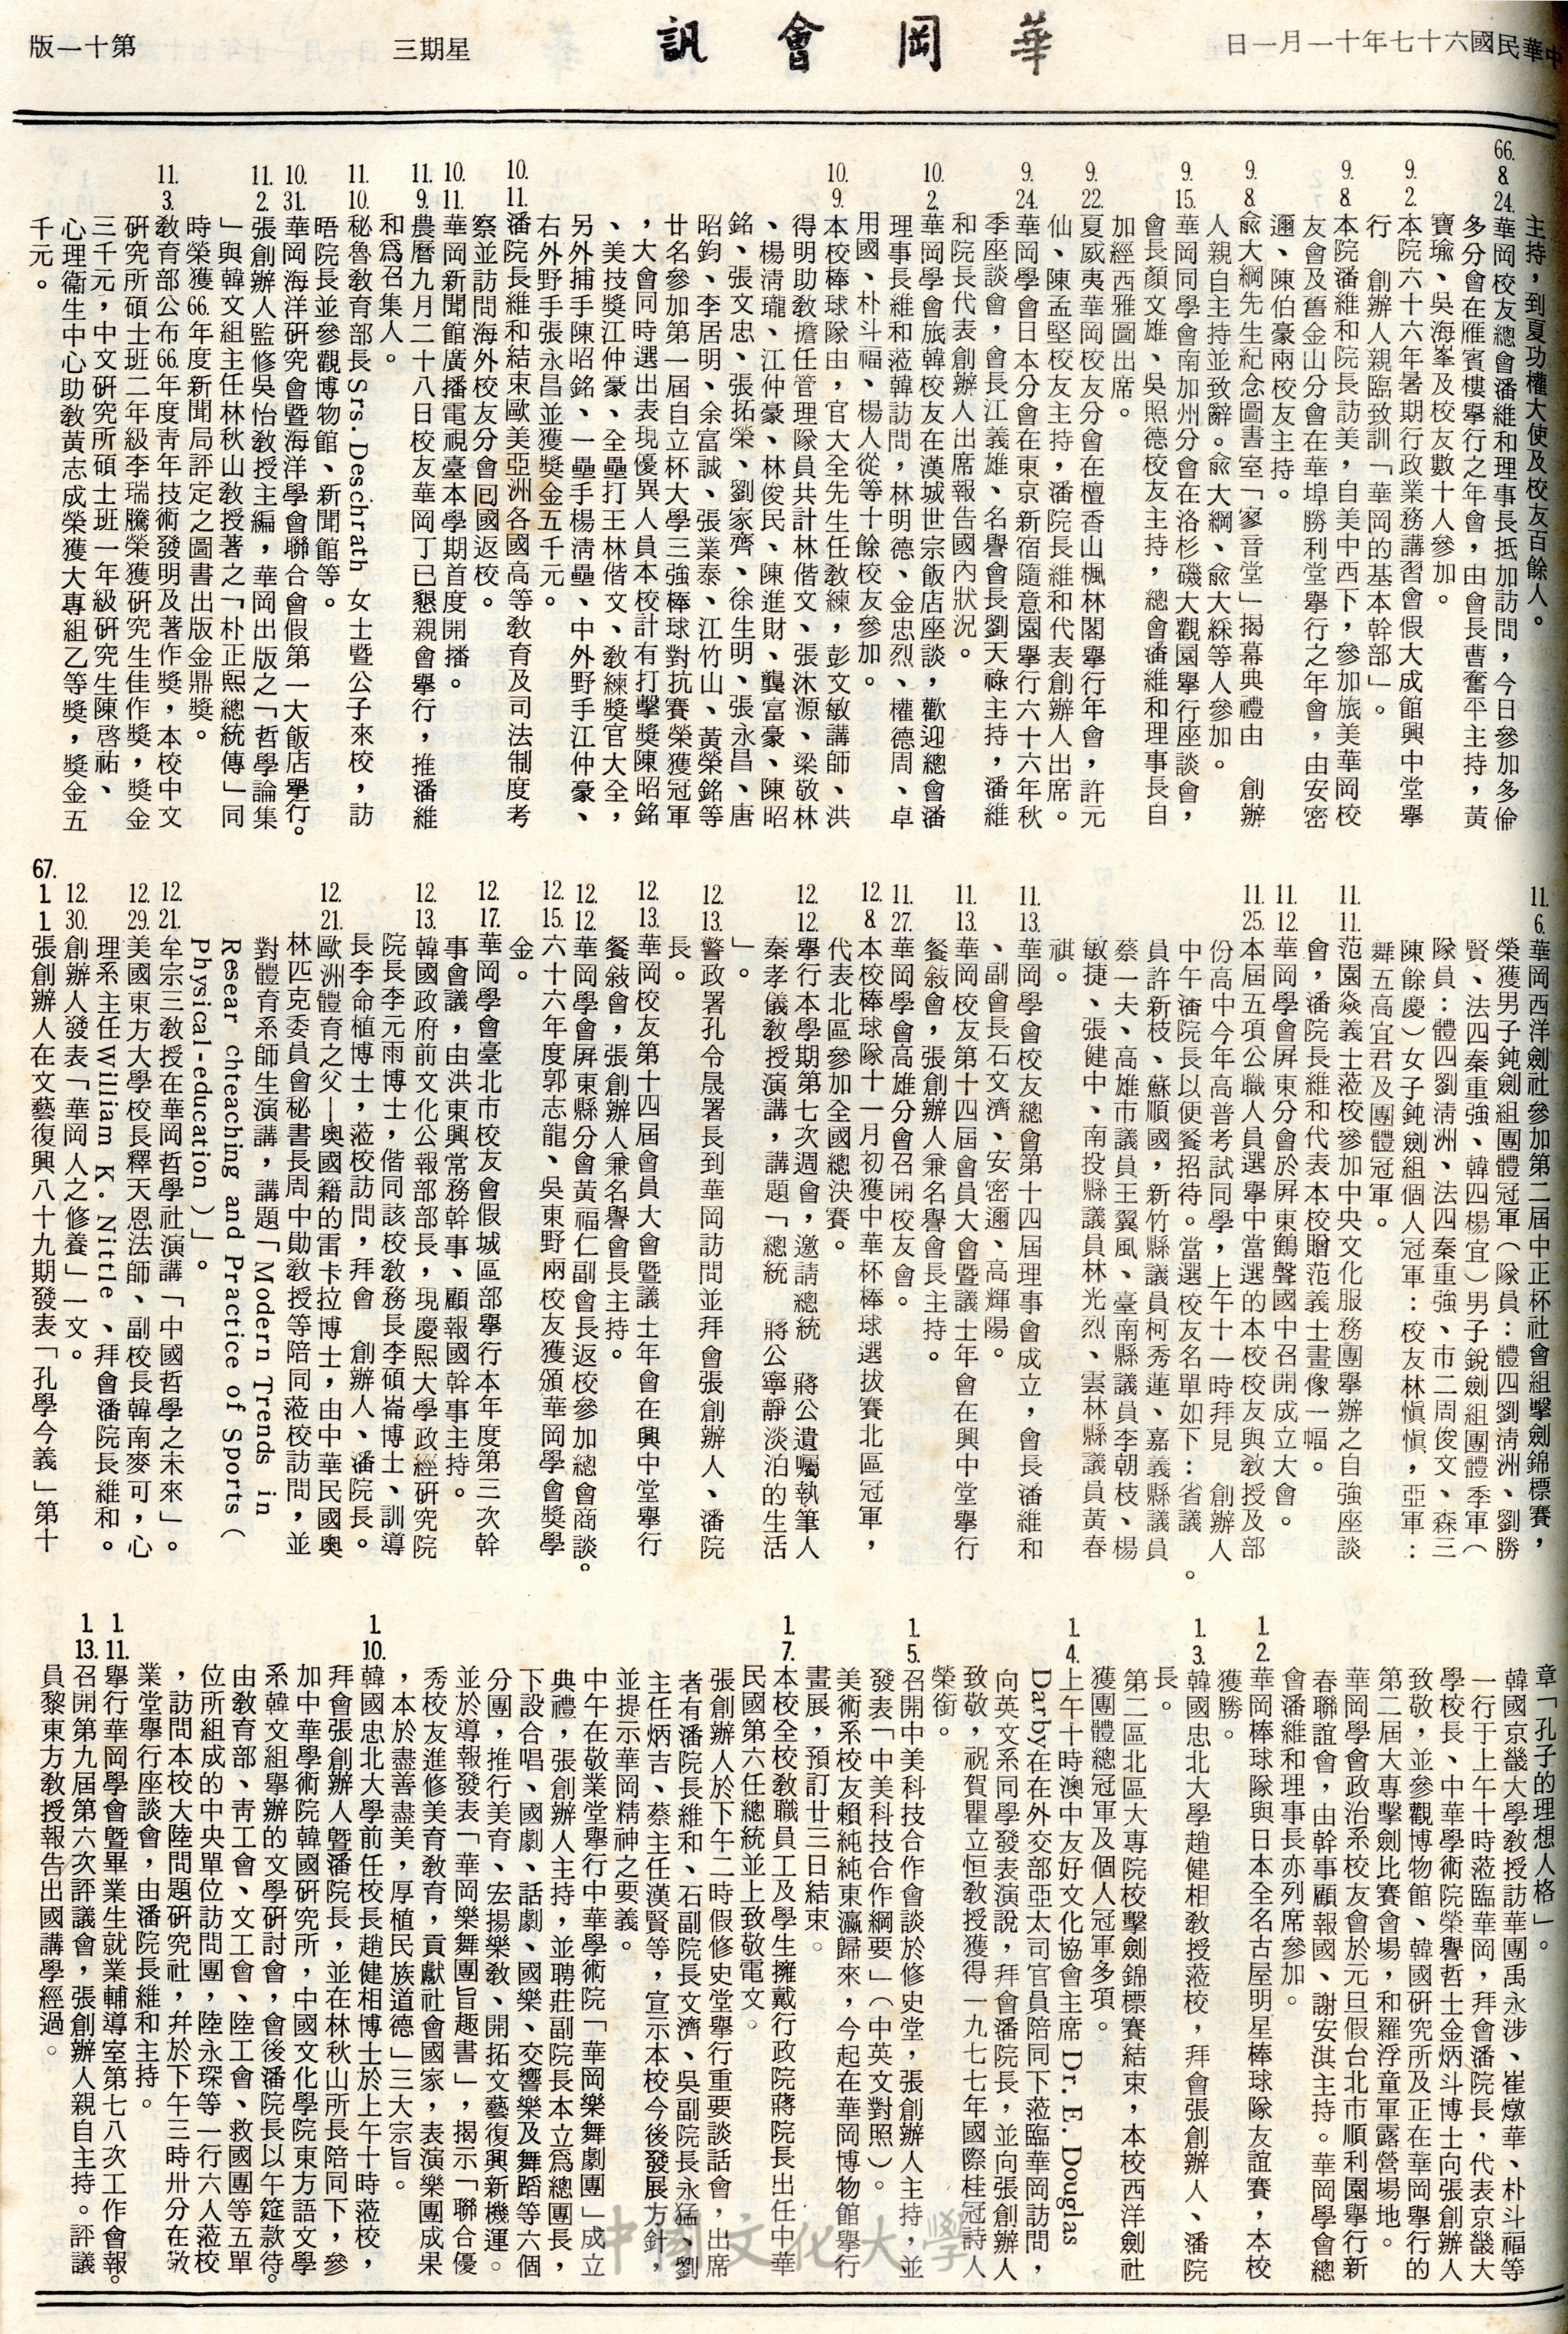 中華民國六十七年十一月一日
華岡會訊
星期三
第十一版
主持，到夏功權大使及校友百餘人。
66.8.24.華岡校友總會潘維和理事長抵加訪問，今日參加多倫
多分會在雁賓樓舉行之年會，由會長曹奮平主持，黃
寶瑜、吳海峯及校友數十人參加。
9.2.本院六十六年暑期行政業務講習會假大成館興中堂舉
行　創辦人親臨致訓「華岡的基本幹部」。
9.8.本院潘維和院長訪美，自美中西下，參加旅美華岡校
友會及舊金山分會在華埠勝利堂舉行之年會，由安密
邇、陳伯豪兩校友主持。
9.8.兪大綱先生紀念圖書室「寥音堂」揭幕典禮由　創辦
人親自主持並致辭。兪大綱、兪大綵等人參加。
9.15.華岡同學會南加州分會在洛杉磯大觀園舉行座談會，
會長顏文雄、吳照德校友主持，總會潘維和理事長自
加經西雅圖出席。
9.22.夏威夷華岡校友分會在檀香山楓林閣舉行年會，許元
仙、陳孟堅校友主持，潘院長維和代表創辦人出席。
9.24.華岡學會日本分會在東京新宿隨意園舉行六十六年秋
季座談會，會長江義雄、名譽會長劉天祿主持，潘維
和院長代表創辦人出席報告國內狀況。
10.2.華岡學會旅韓校友在漢城世宗飯店座談，歡迎總會潘
理事長維和蒞韓訪問，林明德、金忠烈、權德周、卓
用國、朴斗福、楊人從等十餘校友參加。
10.9.本校棒球隊由，官大全先生任教練，彭文敏講師、洪
得明助教擔任管理隊員共計林偕文、張沐源、梁敬林
、楊淸瓏、江仲豪、林俊民、陳進財、龔富豪、陳昭
銘、張文忠、張拓榮、劉家齊、徐生明、張永昌、唐
昭鈞、李居明、余富誠、張業泰、江竹山、黃榮銘等
廿名參加第一屆自立杯大學三強棒球對抗賽榮獲冠軍
，大會同時選出表現優異人員本校計有打擊獎陳昭銘
、美技獎江仲豪、全壘打王林偕文、教練獎官大全，
另外捕手陳昭銘、一壘手楊淸壘、中外野手江仲豪、
右外野手張永昌並獲獎金五千元。
10.11.潘院長維和結束歐美亞洲各國高等教育及司法制度考
察並訪問海外校友分會囘國返校。
10.11.華岡新聞館廣播電視臺本學期首度開播。
11.9.農曆九月二十八日校友華岡丁已懇親會舉行，推潘維
和爲召集人。
11.10.秘魯教育部長Srs. Deschrath 女士暨公子來校，訪
晤院長並參觀博物館、新聞館等。
10.31.華岡海洋硏究會暨海洋學會聯合會假第一大飯店擧行。
11.2.張創辦人監修吳怡教授主編，華岡出版之「哲學論集
」與韓文組主任林秋山教授著之「朴正熙總統傳」同
時榮獲66年度新聞局評定之圖書出版金鼎獎。
11.3.教育部公布66年度靑年技術發明及著作獎，本校中文
硏究所碩士班二年級李瑞騰榮獲硏究生佳作獎，獎金
三千元，中文硏究所碩士班一年級硏究生陳啓祐、
心理衞生中心助教黃志成榮獲大專組乙等獎，獎金五
千元。
11.6.華岡西洋劍社參加第二屆中正杯社會組擊劍錦標賽，
榮獲男子鈍劍組團體冠軍（隊員：體四劉淸洲、劉勝
賢、法四秦重強、韓四楊宜）男子銳劍組團體季軍（
隊員：體四劉淸洲、法四秦重強、市二周俊文、森三
陳餘慶）女子鈍劍組個人冠軍：校友林愼愼，亞軍：
舞五高宜君及團體冠軍。
11.11.范園焱義士蒞校參加中央文化服務團舉辦之自強座談
會，潘院長維和代表本校贈范義士畫像一幅。
11.12.華岡學會屏東分會於屏東鶴聲國中召開成立大會。
11.25.本屆五項公職人員選舉中當選的本校校友與教授及部
份高中今年高普考試同學，上午十一時拜見　創辦人
中午潘院長以便餐招待。當選校友名單如下：省議。
員許新枝、蘇順國，新竹縣議員柯秀蓮、嘉義縣議員
蔡一夫、高雄市議員王翼風、臺南縣議員李朝枝、楊
敏捷、張健中、南投縣議員林光烈、雲林縣議員黃春
祺。
11.13.華岡學會校友總會第十四屆理事會成立，會長潘維和
、副會長石文濟、安密邇、高輝陽。
11.13.華岡校友第十四屆會員大會暨議士年會在興中堂舉行
餐敍會，張創辦人兼名譽會長主持。
11.27.華岡學會高雄分會召開校友會。
12.8.本校棒球隊十一月初獲中華杯棒球選拔賽北區冠軍，
代表北區參加全國總決賽。
12.12.舉行本學期第七次週會，邀請總統　蔣公遺囑執筆人
秦孝儀教授演講，講題「總統　蔣公寧靜淡泊的生活
」。
12.13.警政署孔令晟署長到華岡訪問並拜會張創辦人、潘院
長。
12.13.華岡校友第十四屆會員大會暨議士年會在興中堂舉行
餐敍會，張創辦人兼名譽會長主持。
12.12.華岡學會屏東縣分會黃福仁副會長返校參加總會商談。
12.15.六十六年度郭志龍、吳東野兩校友獲頒華岡學會獎學
金。
12.17.華岡學會臺北市校友會假城區部舉行本年度第三次幹
事會議，由洪東興常務幹事、顧報國幹事主持。
12.13.韓國政府前文化公報部部長，現慶熙大學政經硏究院
院長李元雨博士，偕同該校教務長李碩崙博士、訓導
長李命植博士，蒞校訪問，拜會　創辦人、潘院長。
12.21.歐洲體育之父—奧國籍的雷卡拉博士，由中華民國奧
林匹克委員會秘書長周中勛教授等陪同蒞校訪問，並
對體育系師生演講，講題「Modern Trends in
Resear chteaching and Practice of Sports（
Physical-education）」。
12.21.牟宗三教授在華岡哲學社演講「中國哲學之未來」。
12.29.美國東方大學校長釋天恩法師、副校長韓南麥可，心
理系主任William K. Nittle、拜會潘院長維和。
12.30.創辦人發表「華岡人之修養」一文。
67.1.1.張創辦人在文藝復興八十九期發表「孔學今義」第十
章「孔子的理想人格」。
韓國京畿大學教授訪華團禹永涉、崔燉華、朴斗福等
一行于上午十時蒞臨華岡，拜會潘院長，代表京畿大
學校長、中華學術院榮譽哲士金炳斗博士向張創辦人
致敬，並參觀博物館、韓國硏究所及正在華岡舉行的
第二屆大專擊劍比賽會場，和羅浮童軍露營場地。
華岡學會政治系校友會於元旦假台北市順利園舉行新
春聯誼會，由幹事顧報國、謝安淇主持。華岡學會總
會潘維和理事長亦列席參加。
1.2.華岡棒球隊與日本全名古屋明星棒球隊友誼賽，本校
獲勝。
1.3.韓國忠北大學趙健相教授蒞校，拜會張創辦人、潘院
長。
第二區北區大專院校擊劍錦標賽結束，本校西洋劍社
獲團體總冠軍及個人冠軍多項。
1.4.上午十時澳中友好文化協會主席 Dr. E. Douglas
Darby在在外交部亞太司官員陪同下蒞臨華岡訪問，
向英文系同學發表演說，拜會潘院長，並向張創辦人
致敬，祝賀瞿立恒教授獲得一九七七年國際桂冠詩人
榮銜。
1.5.召開中美科技合作會談於修史堂，張創辦人主持，並
發表「中美科技合作綱要」（中英文對照）。
美術系校友賴純純東瀛歸來，今起在華岡博物館舉行
畫展，預訂廿三日結束。
1.7.本校全校教職員工及學生擁戴行政院蔣院長出任中華
民國第六任總統並上致敬電文。
張創辦人於下午二時假修史堂舉行重要談話會，出席
者有潘院長維和、石副院長文濟、吳副院長永猛、劉
主任炳吉、蔡主任漢賢等，宣示本校今後發展方針，
並提示華岡精神之要義。
中午在敬業堂舉行中華學術院「華岡樂舞劇團」成立
典禮，張創辦人主持，並聘莊副院長本立爲總團長，
下設合唱、國劇、話劇、國樂、交響樂及舞蹈等六個
分團，推行美育、宏揚樂教、開拓文藝復興新機運。
並於導報發表「華岡樂舞團旨趣書」，揭示「聯合優
秀校友進修美育教育，貢獻社會國家，表演樂團成果
，本於盡善盡美，厚植民族道德」三大宗旨。
1.10.韓國忠北大學前任校長趙健相博士於上午十時蒞校，
拜會張創辦人暨潘院長，並在林秋山所長陪同下，參
加中華學術院韓國硏究所，中國文化學院東方語文學
系韓文組舉辦的文學硏討會，會後潘院長以午筵款待。
由教育部、靑工會、文工會、陸工會、救國團等五單
位所組成的中央單位訪問團，陸永琛等一行六人蒞校
，訪問本校大陸問題硏究社，幷於下午三時卅分在敬
業堂舉行座談會，由潘院長維和主持。
1.11.舉行華岡學會暨畢業生就業輔導室第七八次工作會報。
1.13.召開第九屆第六次評議會，張創辦人親自主持。評議
員黎東方教授報告出國講學經過。
中國文化大學